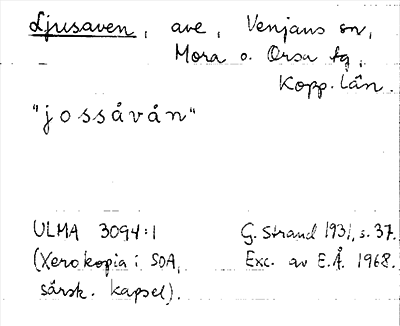 Ljusaven, ave, Venjans sn,
Mora o. Orsa tg,
Kopp. län.
"jossåvån"
ULMA 3094:1 G. Strand 1931, s. 37.
(Xerokopia i SOA, Exc. av E.Å. 1968.
särsk. kapsel).